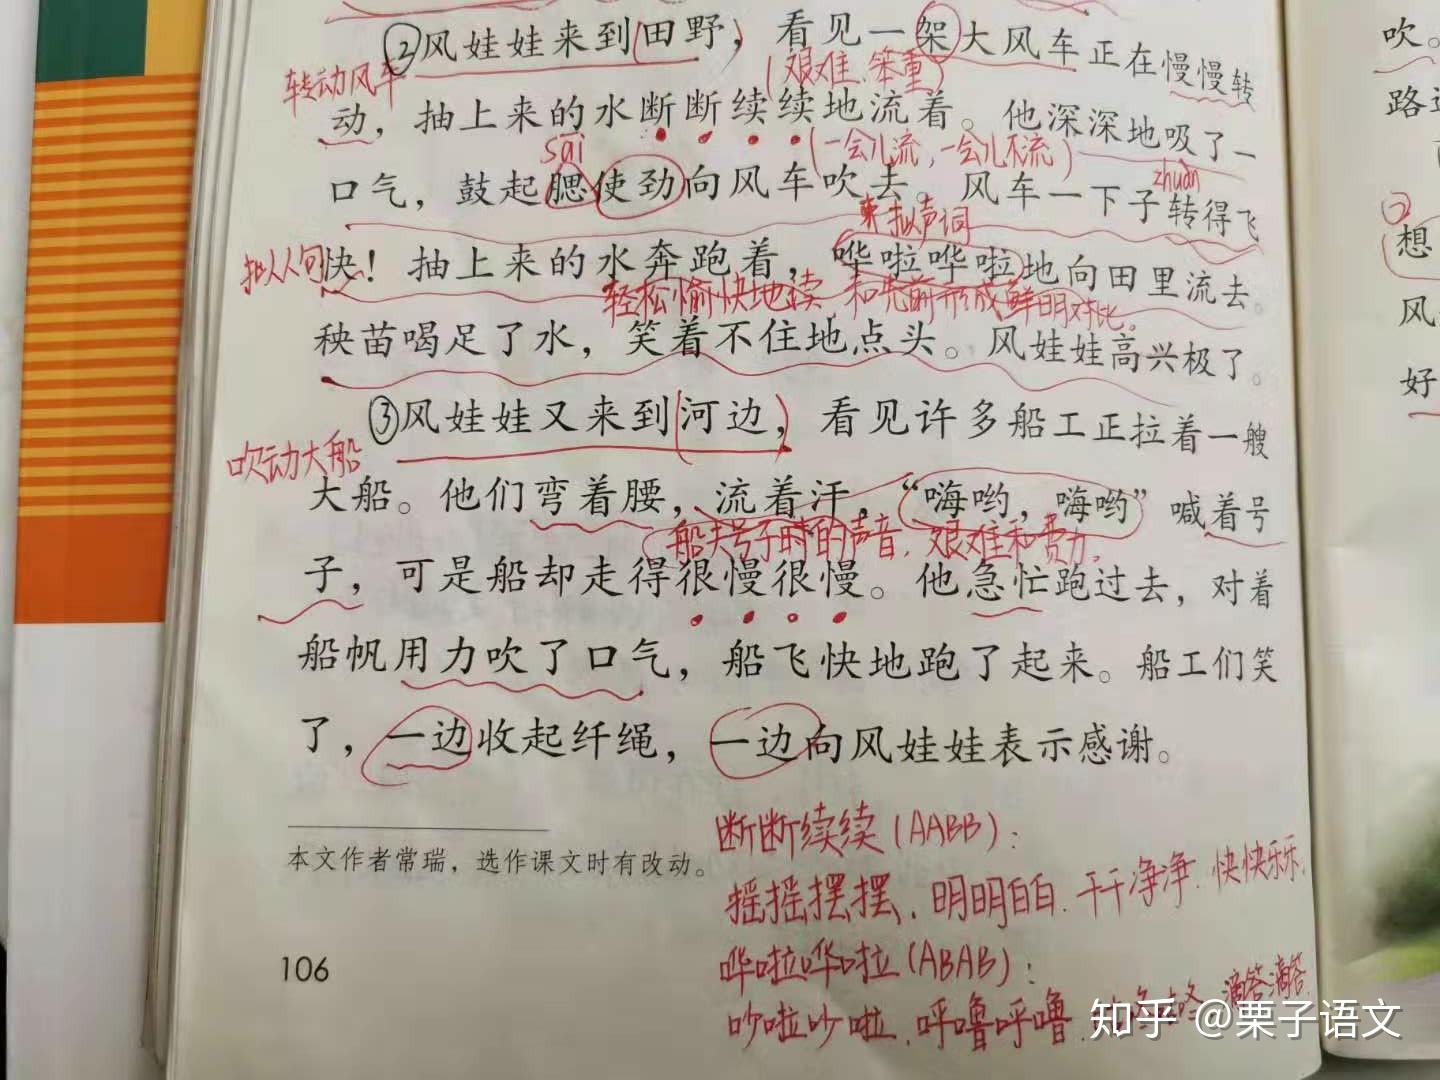 ②风娃娃来到田野，看见一架大风车正在慢慢转
转动风车
（艰难、笨重）
动，抽上来的水断断续续地流着。他深深地吸了一
sāi
（一会儿流，一会儿不流）
口气，鼓起腮使劲向风车吹去。风车一下子转得飞
zhuàn
拟声词
拟人句
快！抽上来的水奔跑着，哗啦哗啦地向田里流去。
轻松愉快地读，和先前形成鲜明对比。
秧苗喝足了水，笑着不住地点头。风娃娃高兴极了。
③风娃娃又来到河边，看见许多船工正拉着一艘
吹动大船
大船。他们弯着腰，流着汗，“嗨哟，嗨哟”喊着号
船夫号子时的声音，艰难和费力。
子，可是船却走得很慢很慢。他急忙跑过去，对着
船帆用力吹了口气，船飞快地跑了起来。船工们笑
了，一边收起纤绳，一边向风娃娃表示感谢。
本文作者常瑞，选作课文时有改动。
断断续续（AABB）：
摇摇摆摆、明明白白、干干净净、快快乐乐、
哗啦哗啦（ABAB）：
吵啦吵啦、呼噜呼噜、滴答滴答
106
知乎 @栗子语文
吹。
路边
②
想
风
好